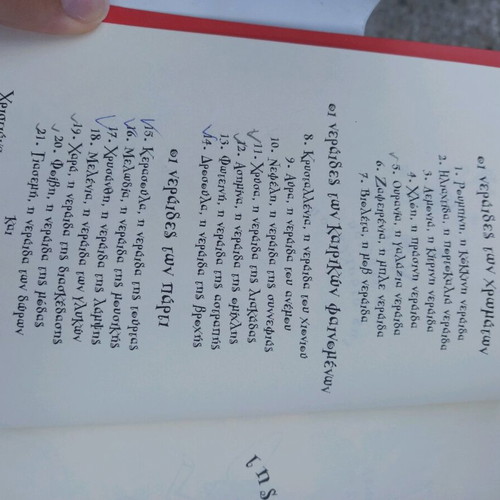 οι νεράιδες των χρωμάτων
1. Ρουμπίνη, η κόκκινη νεράιδα
2. Ηλιαχτίδα, η πορτοκαλιά νεράιδα
3. Λεμονιά, η κίτρινη νεράιδα
4. Χλόη, η πράσινη νεράιδα
5. Ουρανία, η γαλάζια νεράιδα
6. Ζαφειρένια, η μπλε νεράιδα
7. Βιολέτα, η μοβ νεράιδα
οι νεράιδες των καιρικών φαινομένων
8. Κρυσταλλένια, η νεράιδα του χιονιού
9. Αύρα, η νεράιδα του ανέμου
10. Νεφέλη, η νεράιδα της συννεφιάς
11. Χρύσα, η νεράιδα της λιακάδας
12. Ασημίνα, η νεράιδα της ομίχλης
13. Φωτεινή, η νεράιδα της αστραπής
14. Δροσούλα, η νεράιδα της βροχής
οι νεράιδες των πάρτι
15. Κερασούλα, η νεράιδα της τούρτας
16. Μελωδία, η νεράιδα της μουσικής
17. Χρυσάνθη, η νεράιδα της λάμψης
18. Μελένια, η νεράιδα των γλυκών
19. Χαρά, η νεράιδα της διασκέδασης
20. Φοίβη, η νεράιδα της μόδας
21. Γιασεμή, η νεράιδα των δώρων
και
της